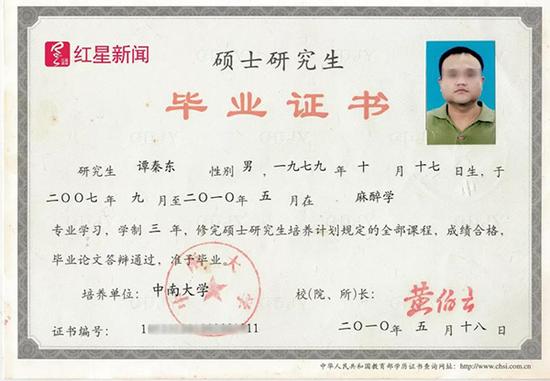 红星新闻
硕士研究生
毕业证书
研究生 谭秦东 性别 男，一九七九 年 十 月 十七 日生，于
二〇〇七 年 九 月至 二〇一〇 年 五 月在 麻醉学
专业学习，学制 三 年，修完硕士研究生培养计划规定的全部课程，成绩合格，
毕业论文答辩通过，准于毕业。
培养单位：中南大学 校(院、所)长：黄伯云
证书编号：1 11 二〇一〇 年 五 月 十八 日
中华人民共和国教育部学历证书查询网址：http://www.chsi.com.cn